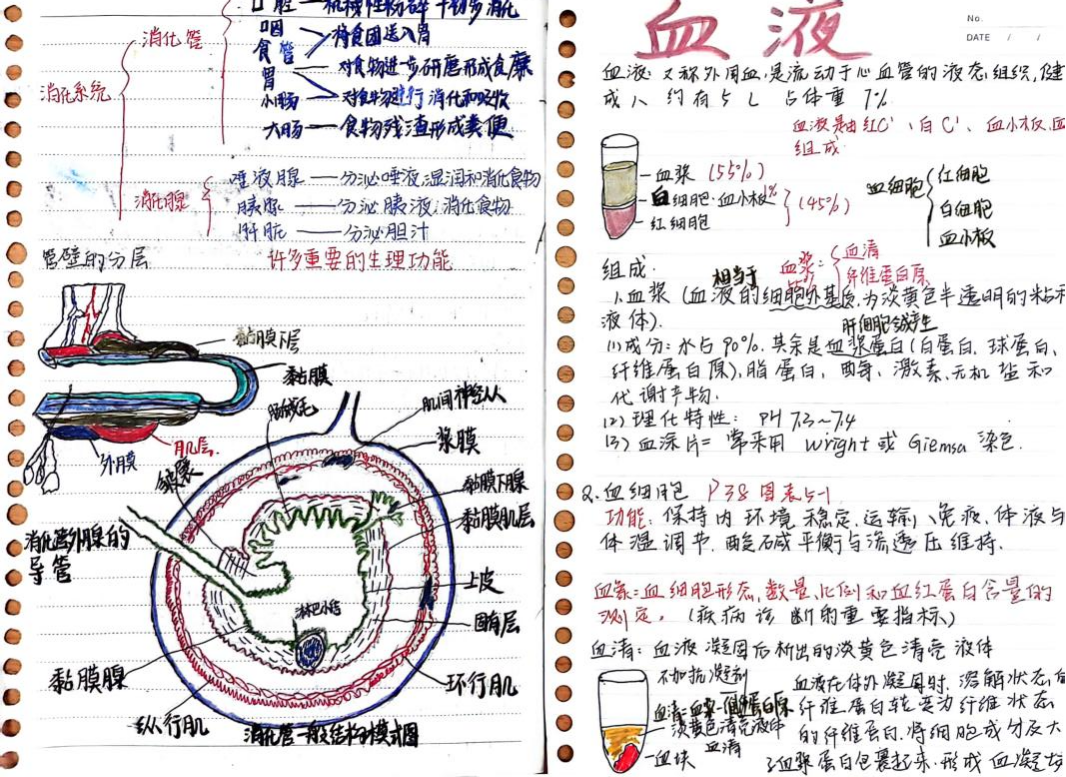 消化系统
消化管
口腔——机械性粉碎 初步消化
咽
食管
将食团送入胃
胃
对食物进步研磨形成食糜
小肠
对食物进行消化和吸收
大肠——食物残渣形成粪便
消化腺
唾液腺——分泌唾液,湿润和消化食物
胰腺——分泌胰液,消化食物
肝脏——分泌胆汁
管壁的分层
许多重要的生理功能
黏膜下层
黏膜
肌层
外膜
肠绒毛
肌间神经丛
浆膜
皱襞
黏膜下腺
黏膜肌层
消化管外腺的
导管
上皮
淋巴小结
固有层
黏膜腺
环行肌
纵行肌
消化管一般结构模式图
血液
No.
DATE / /
血液:又称外周血,是流动于心血管的液态组织,健
成人 约有5L 占体重7%
血液是由红C'、白C'、血小板、血
组成
血浆 (55%)
白细胞·血小板1%
红细胞
(45%)
血细胞
红细胞
白细胞
血小板
组成.
血浆:
血清
纤维蛋白原
相当于
1.血浆(血液的细胞外基质,为淡黄色半透明的粘稠
液体).
肝细胞合成产生
(1)成分:水占90%.其余是血浆蛋白(白蛋白.球蛋白、
纤维蛋白原),脂蛋白,酶、激素、无机盐和
代谢产物.
(2)理化特性: PH 7.3~7.4
(3)血涂片= 常采用 Wright 或 Giemsa 染色.
2.血细胞 P38 图表5-1
功能:保持内环境稳定、运输、免疫、体液与
体温调节.酸碱平衡与渗透压维持.
血象=血细胞形态,数量,比例和血红蛋白含量的
测定。(疾病诊断的重要指标)
血清:血液凝固后析出的淡黄色清亮液体
不加抗凝剂
血清=血浆-纤维蛋白原
淡黄色清亮液体
血清
血块
血液在体外凝固时.溶解状态的
纤维蛋白转变为纤维状态
的纤维蛋白.将细胞成分及大
血浆蛋白包裹起来.形成血凝块